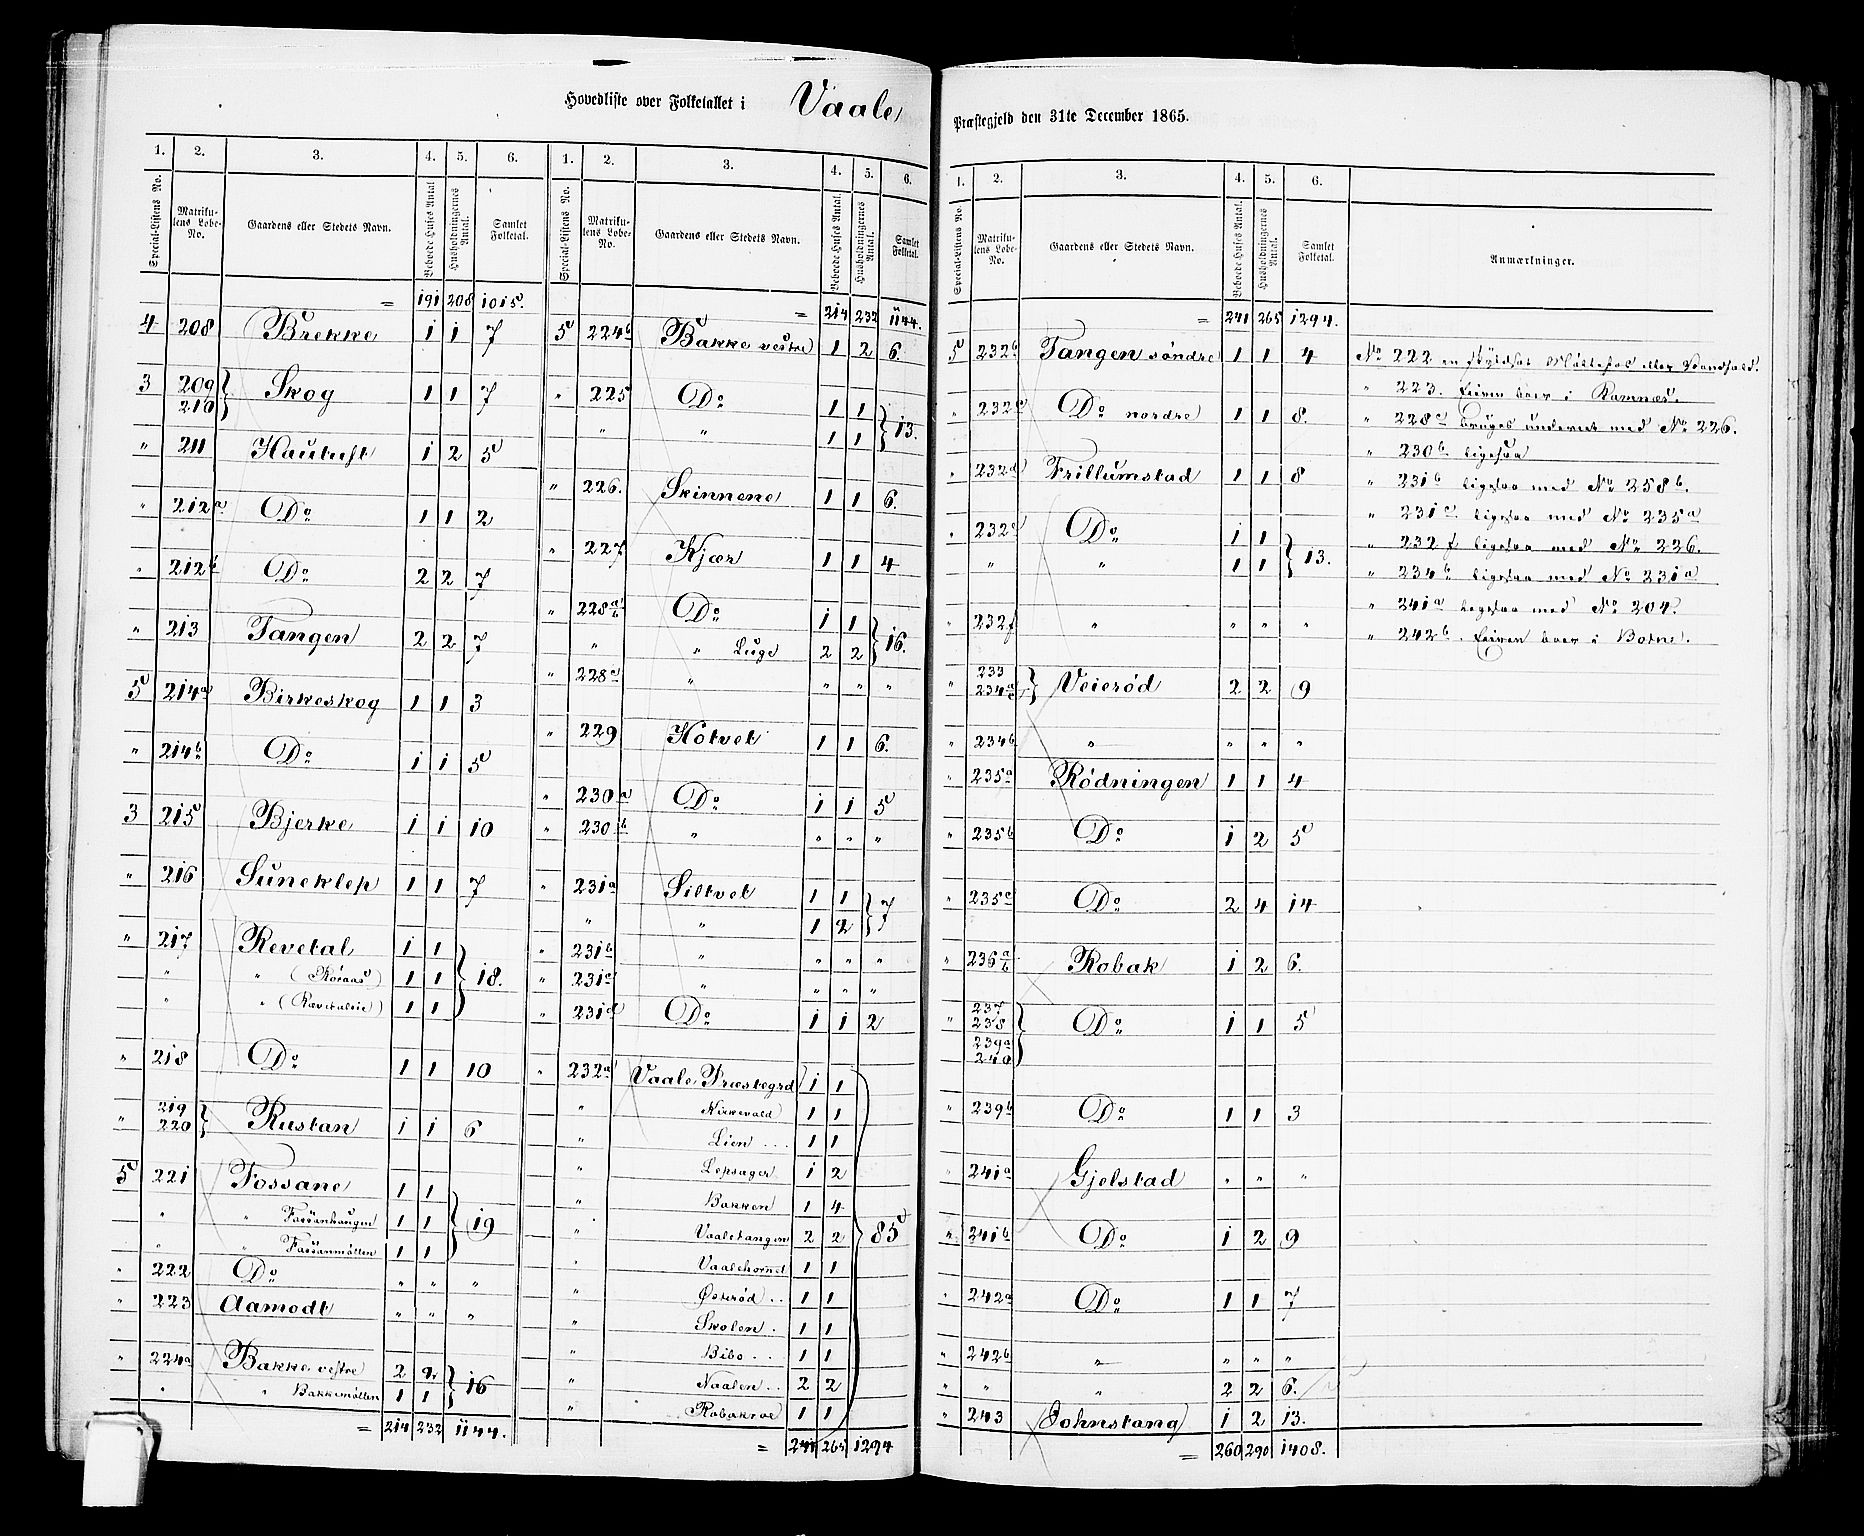 Hovedliste over Folketallet i Vaale
Præstegjeld den 31te December 1865.
1. 2. 3. 4. 5. 6.
Special-Listens No. Matrikulens Løbe-No. Gaardens eller Stedets Navn. Beboede Huses Antal Husholdningernes Antal. Samlet Folketal.
= 191 208 1015.
4 208 Brekke 1 1 7
3 209 210 } Skog 1 1 7
" 211 1 2 5
" 212a Do 1 1 2
" 212b Do 2 2 7
" 213 Tangen 2 2 7
5 214a Birkeskog 1 1 3
" 214b Do 1 1 5
3 215 Bjerke 1 1 10
" 216 Suneklep 1 1 7
" 217 Revetal 1 1
" " (Røraas) 1 1 } 18.
" " 1 1
" 218 Do 1 1 10
" 219 220 } Rustan 1 1 6
5 221 Fossane 1 1
" " Fossanhaugen 1 1 } 19
" " Fossanmøllen 1 1
" 222 Do " " "
" 223 Aamodt " " "
" 224a Bakke vestre 2 2
" " Bakkemøllen 1 1 } 16
= 214 232 1144.
1. 2. 3. 4. 5. 6.
Special-Listens No. Matrikulens Løbe-No. Gaardens eller Stedets Navn. Beboede Huses Antal. Husholdningernes Antal. Samlet Folketal.
= 214 232 1144.
5 224b Bakke vestre 1 2 6.
" 225 Do 1 1
" " 1 1 } 13.
" 226. Skinnene 1 1 6.
" 227 Kjær 1 1 4
" 228a/b Do 1 1
" " 2 2 } 16.
" 228c " " " "
" 229 Hotvet 1 1 6.
" 230a Do 1 1 5
" 230b " " " "
" 231a Siltvet 1 1
" " 1 2 } 7
" 231b " " " "
" 231c " " " "
" 231d Do 1 1 2
" 232a Vaale Præstegrd 1 1
" Kirkevold 1 1
" Lien ... 1 1
" Lepsager 1 2
" Bakken 1 4
" Vaaletangen 2 2 } 85
" Vaalehornet 1 1
" Østerød .. 1 1
" Skolen . 1 1
" Bibo .. 1 1
" Naalen .. 2 2
" Robakroe 1 1
= 241 265 1294
1. 2. 3. 4. 5. 6.
Special-Listens No. Matrikulens Løbe-No. Gaardens eller Stedets Navn. Beboede Huses Antal. Husholdningernes Antal. Samlet Folketal. Anmærkninger.
= 241 265 1294.
5 232b Tangen søndre 1 1 4
" 232c Do nordre 1 1 8.
" 232d Frillumstad 1 1 8
" 232e Do 1 1
" " 1 1 } 13.
" 232f " " " "
" 233 234a } Veierød 2 2 9
" 234b " " " "
" 235a Rødningen 1 1 4
" 235b Do 1 2 5
" 235c Do 2 4 14
" 236a/b Robak 1 2 6.
" 237 238 239a 240 } Do 1 1 5
" 239b Do 1 1 3
" 241a Gjelstad " " "
" 241b Do 1 2 9
" 242a Do 1 1 7
" 242b " " " "
" " " 2 2 6.
" 243 Johnstang 1 2 13.
= 260 290 1408.
No 222 en
" 223. Eieren boer i Ramnæs.
" 228c bruges underet med No 226.
" 230b ligesaa
" 231b ligesaa med No 258b.
" 231c ligesaa med No 235a
" 232f ligesaa med No 226.
" 234b ligesaa med No 231a
" 241a ligesaa med No 204.
" 242b. Eieren boer i Botne.